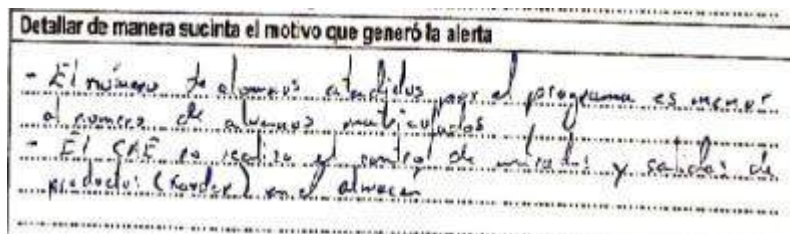 Detallar de manera sucinta el motivo que generó la alerta
- El número de alumnos atendidos por el programa es menor
al numero de alumnos matriculados
- El CAE no realiza el control de entradas y salidas de
productos (Kardex) en el almacen